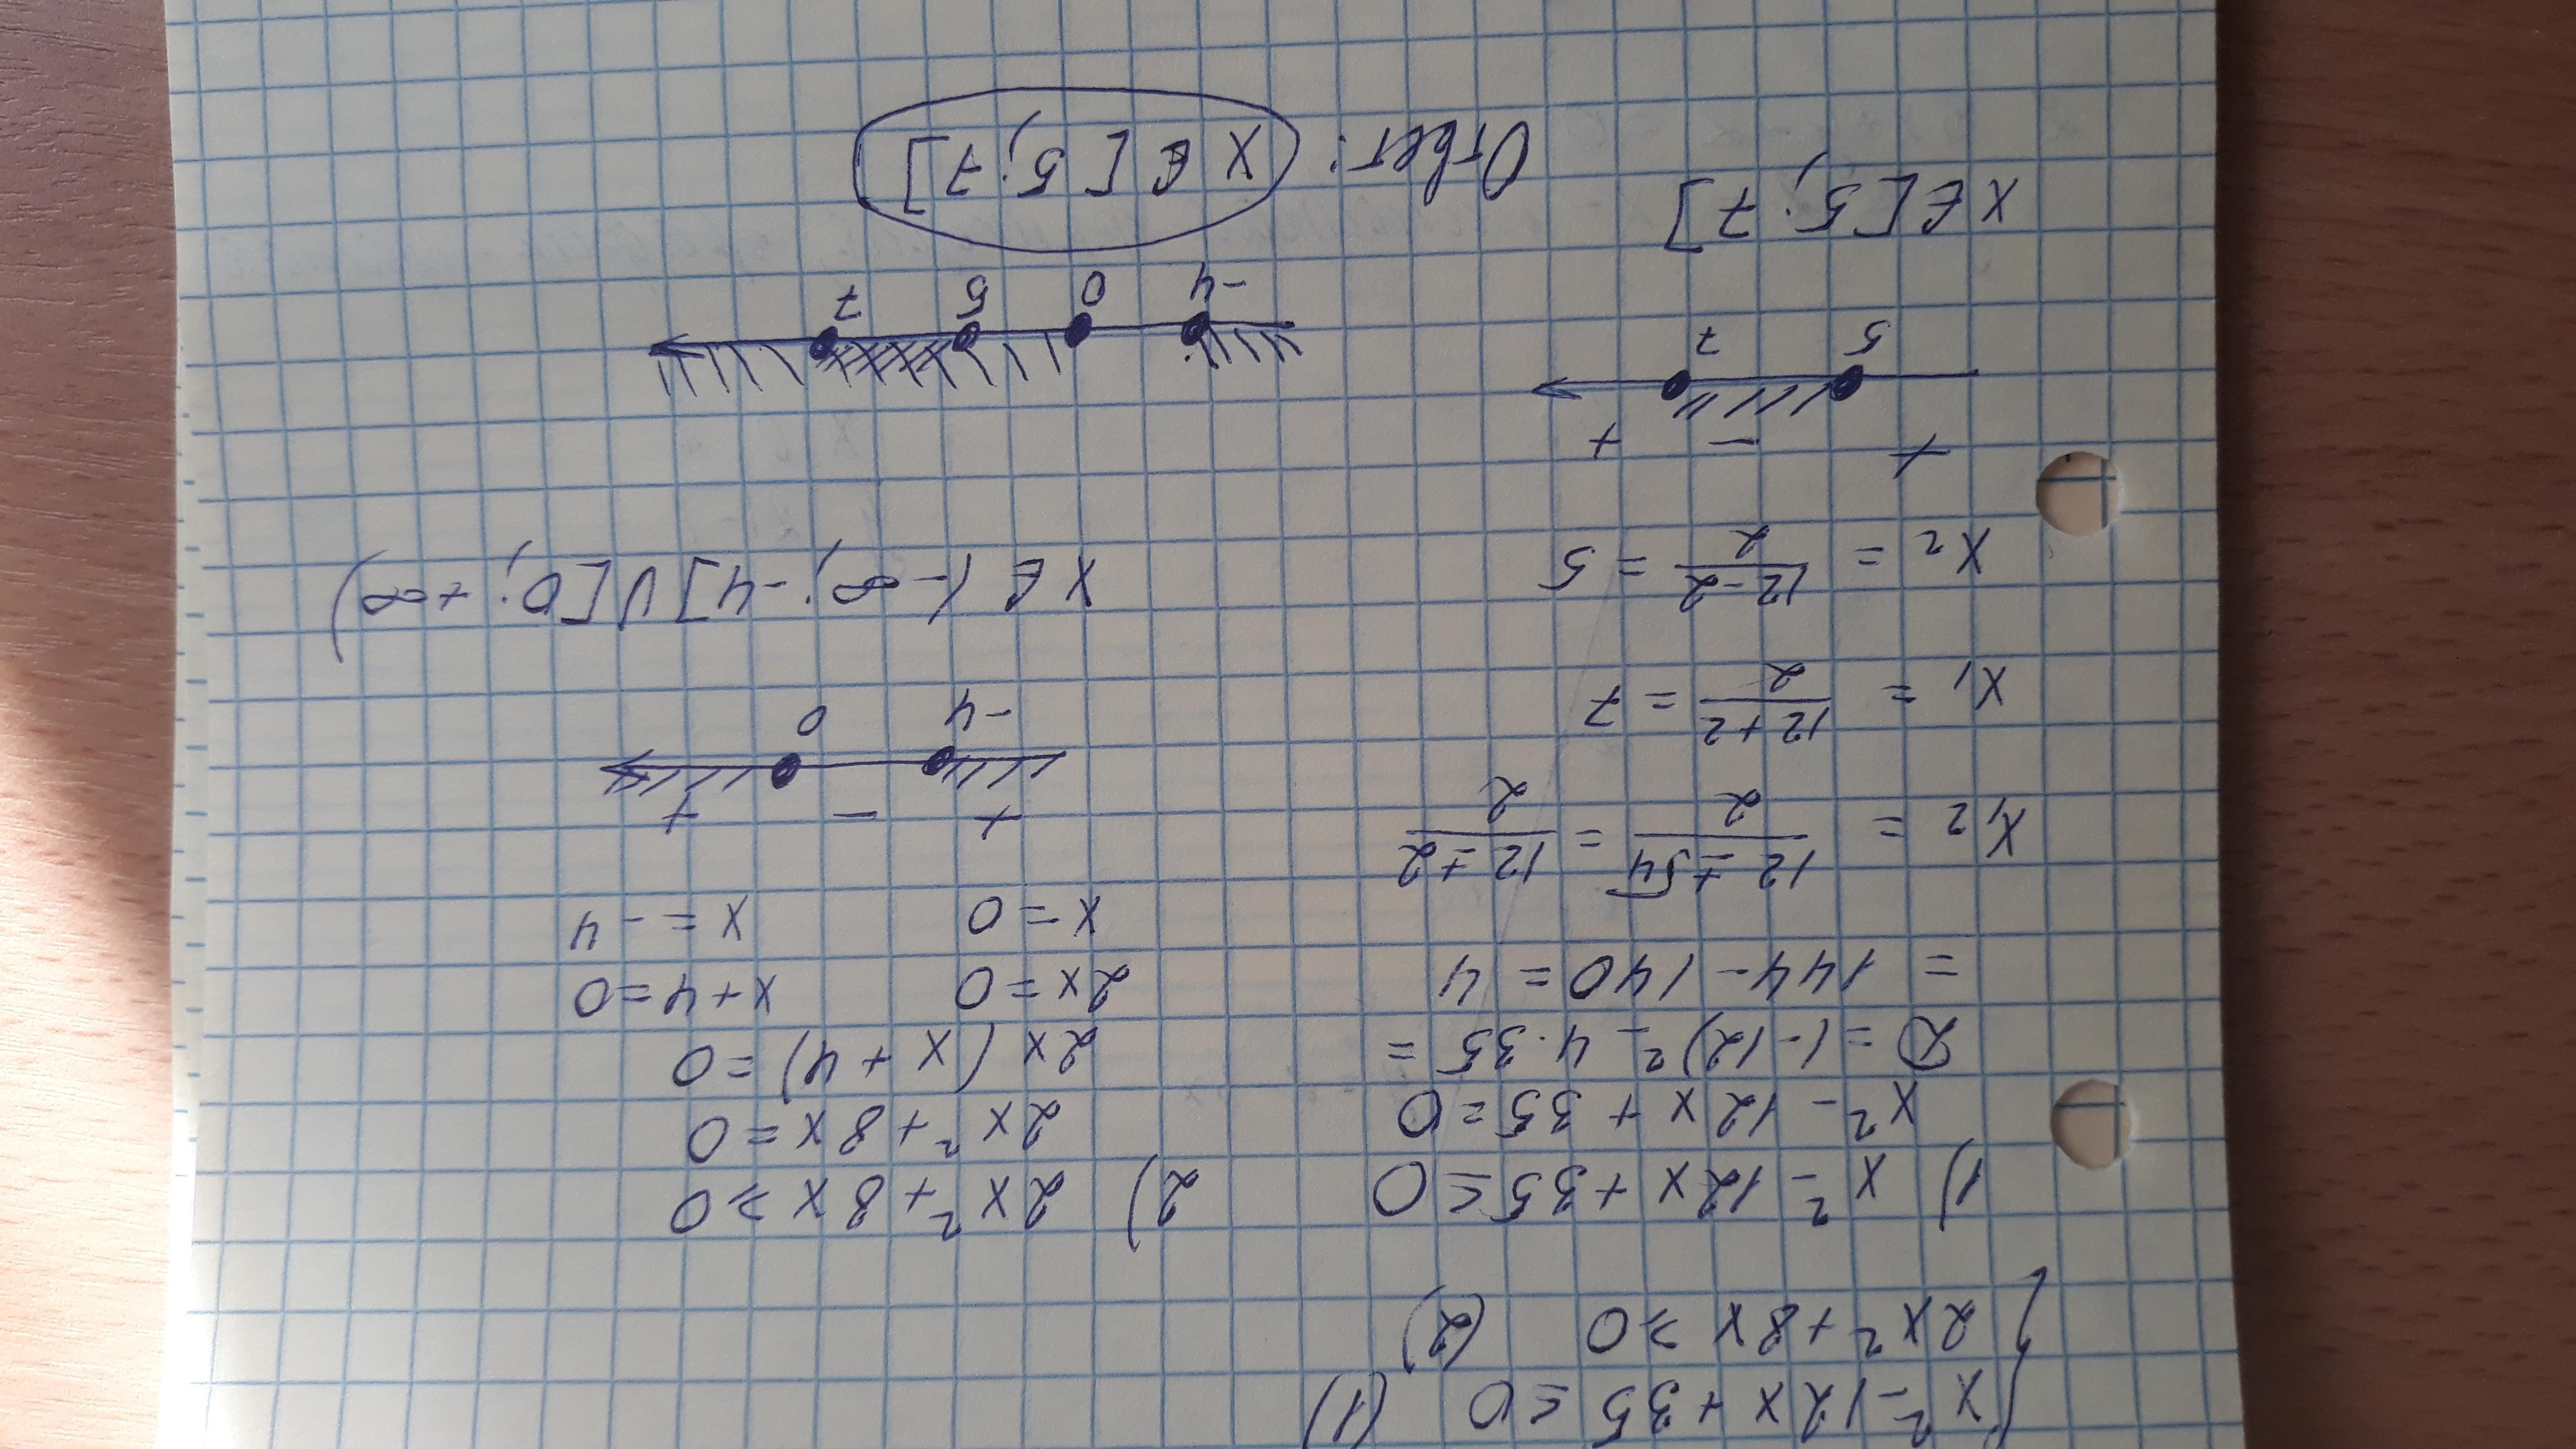 x² - 12x + 35 ≤ 0 (1)
2x² + 8x ≥ 0 (2)
1) x² - 12x + 35 ≤ 0
x² - 12x + 35 = 0
D = (-12)² - 4·35 =
= 144 - 140 = 4
x₁,₂ = (12 ± √4)/2 = (12 ± 2)/2
x₁ = (12 + 2)/2 = 7
x₂ = (12 - 2)/2 = 5
+ - +
5 7
x ∈ [5; 7]
2) 2x² + 8x ≥ 0
2x² + 8x = 0
2x (x + 4) = 0
2x = 0 x + 4 = 0
x = 0 x = -4
+ - +
-4 0
x ∈ (-∞; -4] ∪ [0; +∞)
-4 0 5 7
Ответ: x ∈ [5; 7]